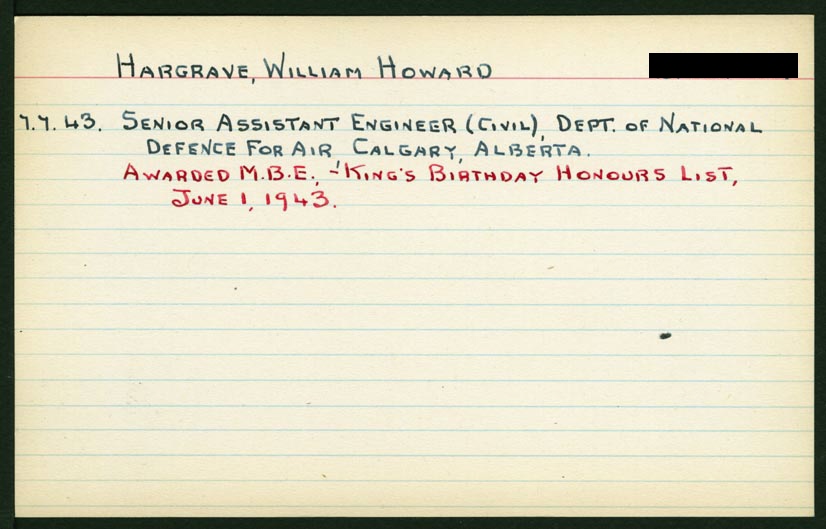 HARGRAVE, WILLIAM HOWARD
7.7.43. SENIOR ASSISTANT ENGINEER (CIVIL), DEPT. OF NATIONAL
DEFENCE FOR AIR, CALGARY, ALBERTA.
AWARDED M.B.E., - KING'S BIRTHDAY HONOURS LIST,
JUNE 1, 1943.